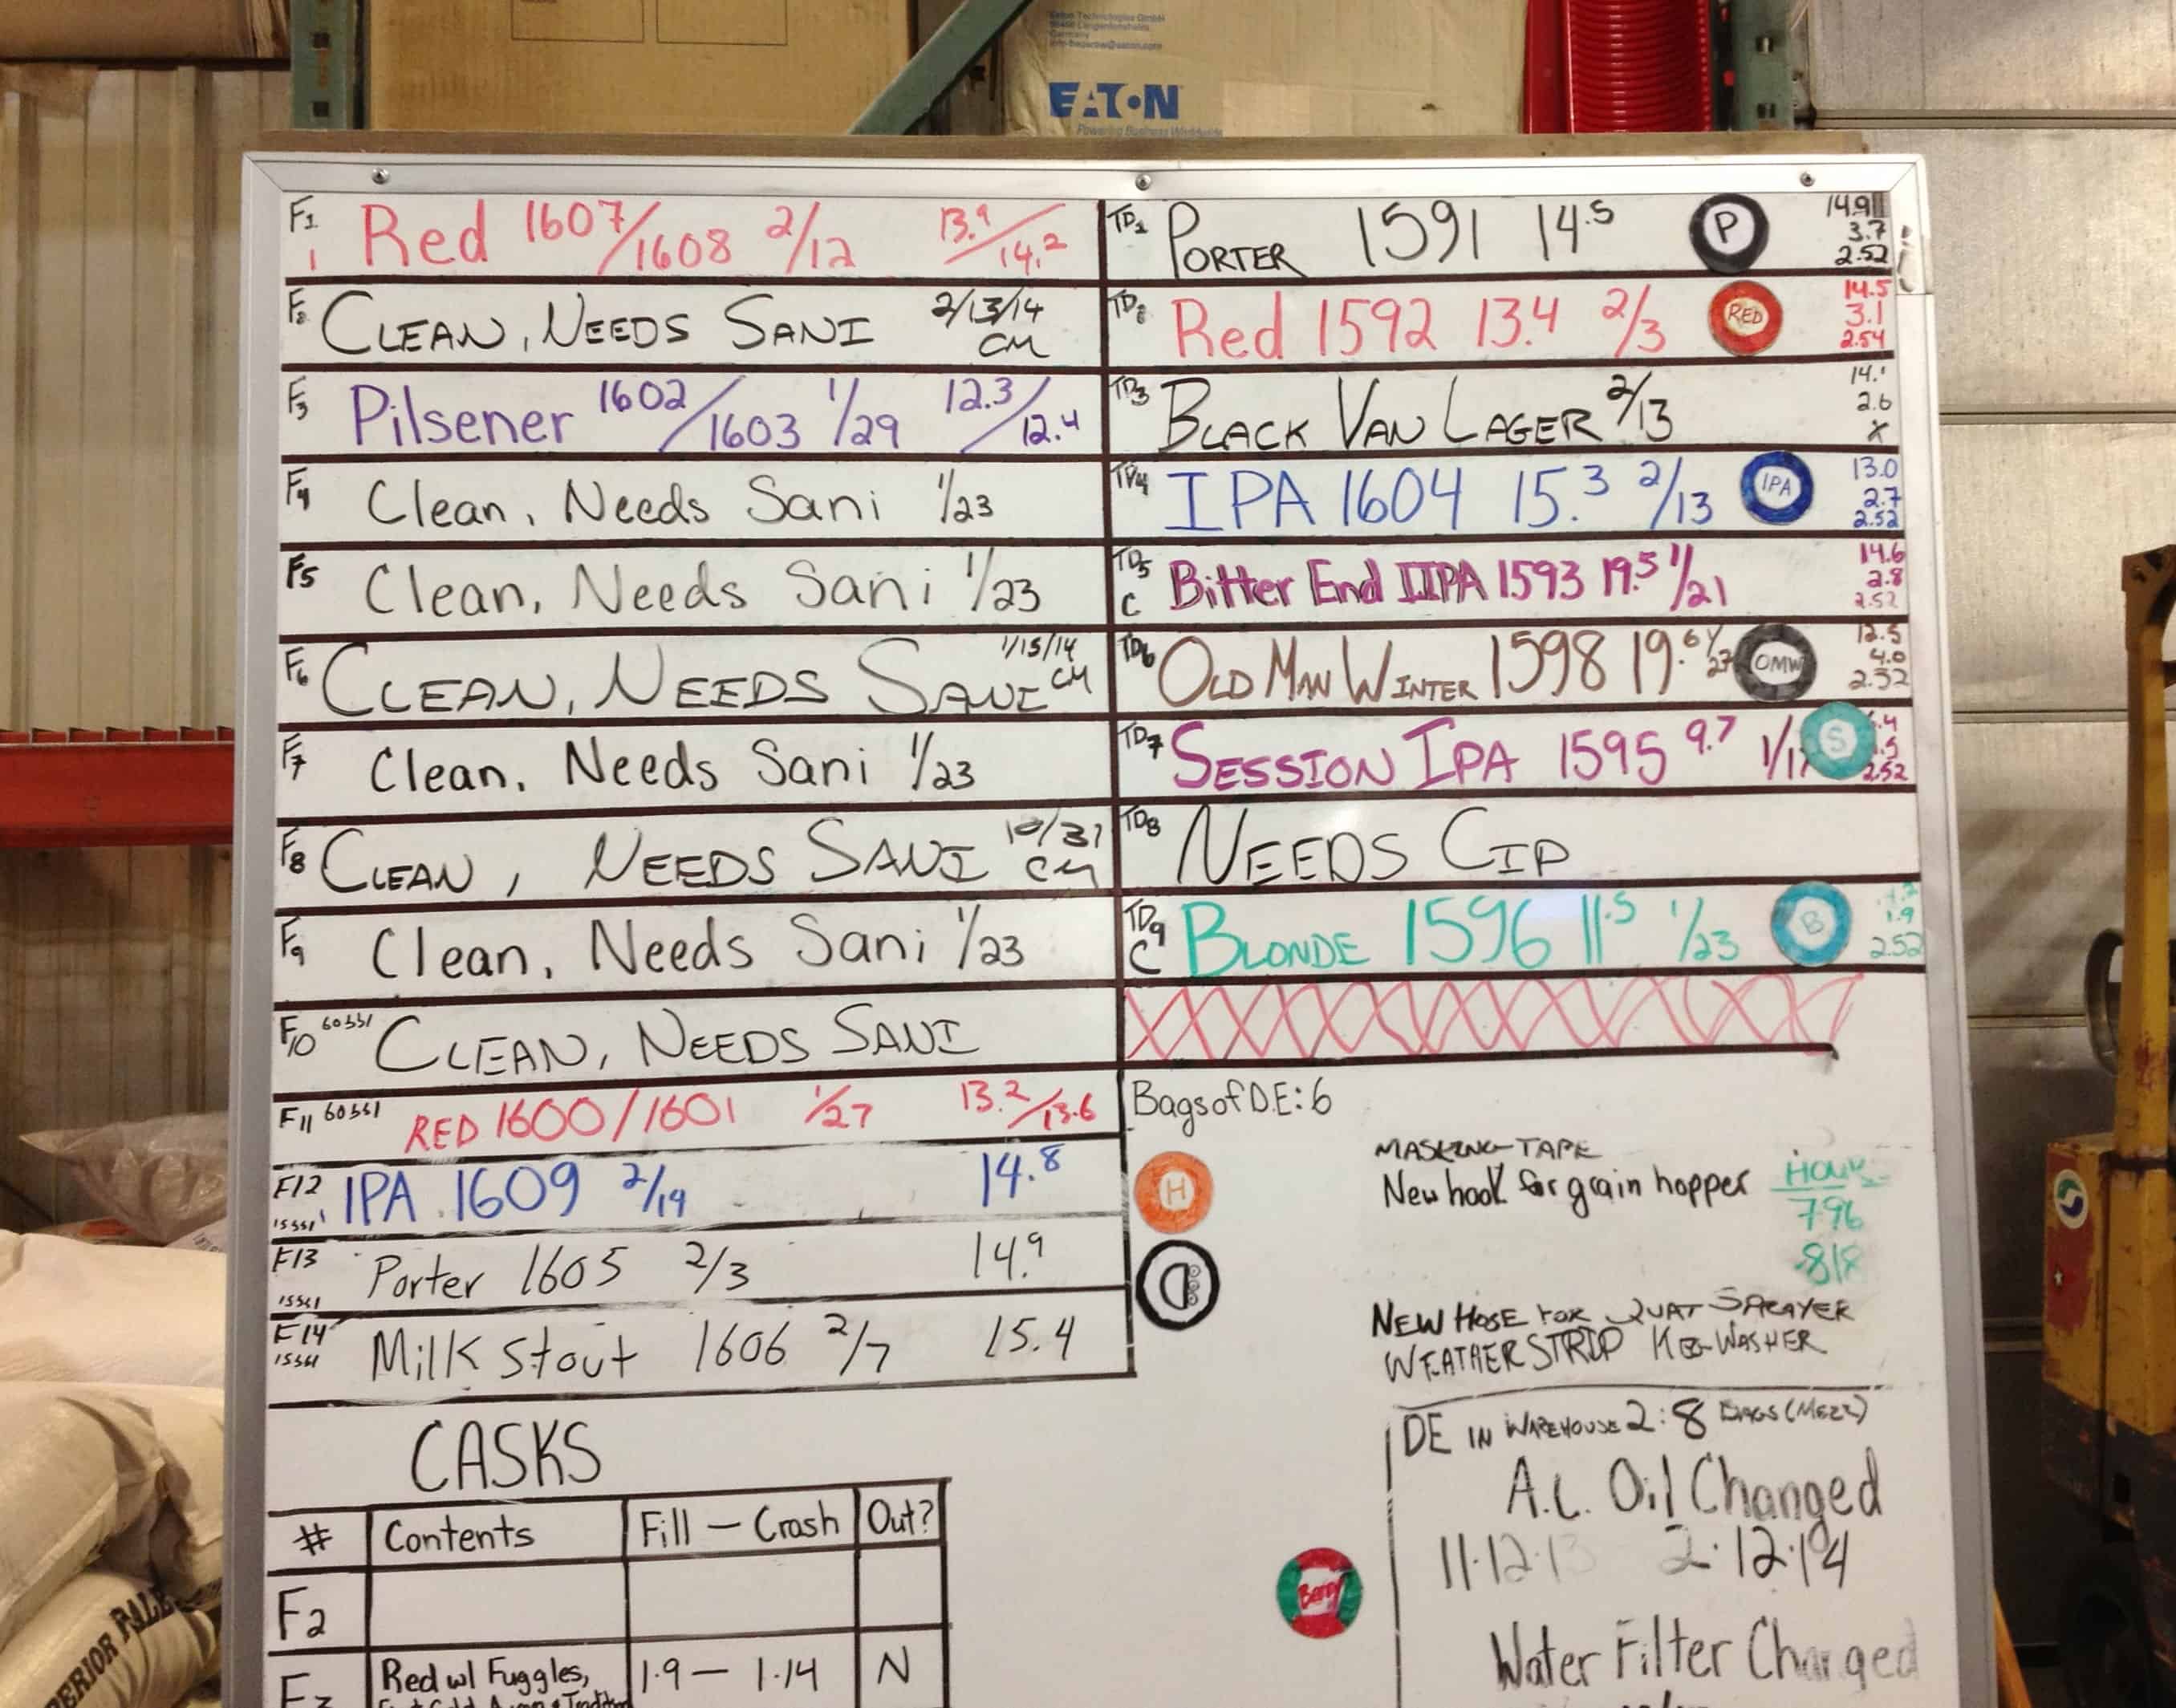 EATON
Powering Business Worldwide
F1 Red 1607/1608 2/12 13.9/14.2
1
F2 CLEAN, NEEDS SANI 2/13/14
CM
F3 Pilsener 1602/1603 1/29 12.3/12.4
F4 Clean, Needs Sani 1/23
F5 Clean, Needs Sani 1/23
F6 CLEAN, NEEDS SANI 1/15/14
CM
F7 Clean, Needs Sani 1/23
F8 CLEAN, NEEDS SANI 10/31
CM
F9 Clean, Needs Sani 1/23
F10 CLEAN, NEEDS SANI
F11 RED 1600/1601 1/27 13.2/13.6
F12 IPA 1609 2/19 14.8
F13 Porter 1605 2/3 14.9
F14 Milk Stout 1606 2/7 15.4
TD1 PORTER 1591 14.5 P 14.9
3.7
2.52
TD2 Red 1592 13.4 2/3 RED 14.5
3.1
2.54
TD3 BLACK VAN LAGER 2/13 14.1
2.6
X
TD4 IPA 1604 15.3 2/13 IPA 13.0
2.7
2.52
TD5 Bitter End IIPA 1593 19.5 1/21 14.6
C 2.8
2.52
TD6 OLD MAN WINTER 1598 19.6 1/27 OMW 12.5
4.0
2.52
TD7 SESSION IPA 1595 9.7 S
2.52
TD8 NEEDS CIP
TD9 BLONDE 1596 11.5 1/23 B
C 1.9
2.52
Bags of D.E: 6
H
MASKING TAPE
New hook for grain hopper
HOURS
796
818
NEW HOSE FOR QUAT SPRAYER
WEATHER STRIP KEG WASHER
DE IN WAREHOUSE 2: 8 BAGS (MEZZ)
A.C. Oil Changed
11.12.13 2.12.14
Water Filter Changed
Berry
CASKS
# Contents Fill — Crash Out?
F2
F3 Red w/ Fuggles, 1.9 — 1.14 N